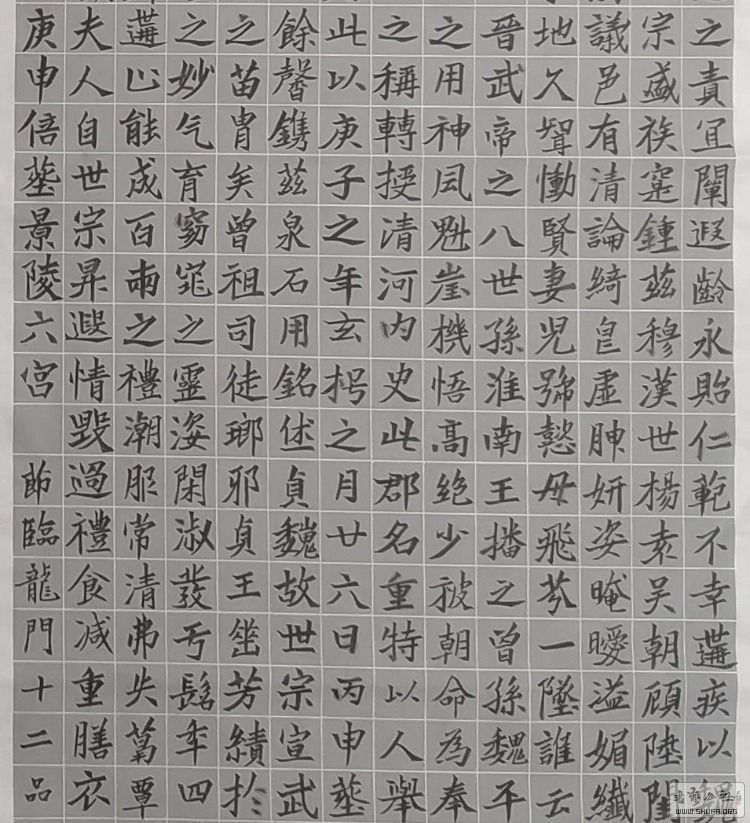 之責宜闡遐齡永貽仁範不幸遘疾以魏
宗盛族寔鍾茲穆漢世楊素吴朝顧陸閨
議邑有清論綺皀虛胂妍姿晻曖溢媚纖
地久響慟賢妻児號懿母飛芩一墜誰云
晉武帝之八世孫淮南王播之曾孫魏平
之用神風魁崖機悟高絶少被朝命為奉
之稱轉授清河内史此郡名重特以人舉
此以庚子之年玄枵之月廿六日丙申塟
餘馨鐫茲泉石用銘休貞魏故世宗宣武
之苗胄矣曾祖司徒瑯邪貞王芳績於
之妙气育窈窕之靈姿閑淑發于髫年四
遘心能成百兩之禮潮服常清弗失覃
夫人自世宗昇遐情毀過禮食減重膳衣
庚申倍塟景陵六宮
節臨龍門十二品
WWW.SHUFA.ORG